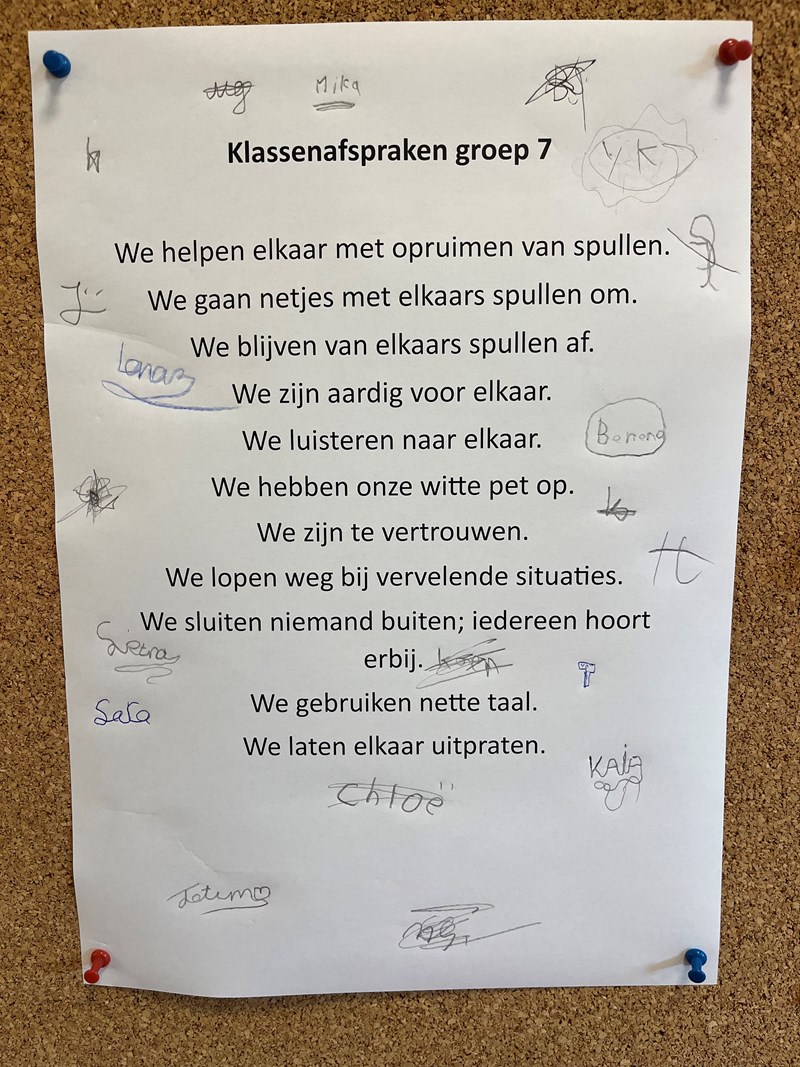 Mika
Klassenafspraken groep 7
YK
We helpen elkaar met opruimen van spullen.
We gaan netjes met elkaars spullen om.
We blijven van elkaars spullen af.
We zijn aardig voor elkaar.
We luisteren naar elkaar.
We hebben onze witte pet op.
We zijn te vertrouwen.
We lopen weg bij vervelende situaties.
We sluiten niemand buiten; iedereen hoort
erbij.
We gebruiken nette taal.
Sara
We laten elkaar uitpraten.
KAJA
Chloë